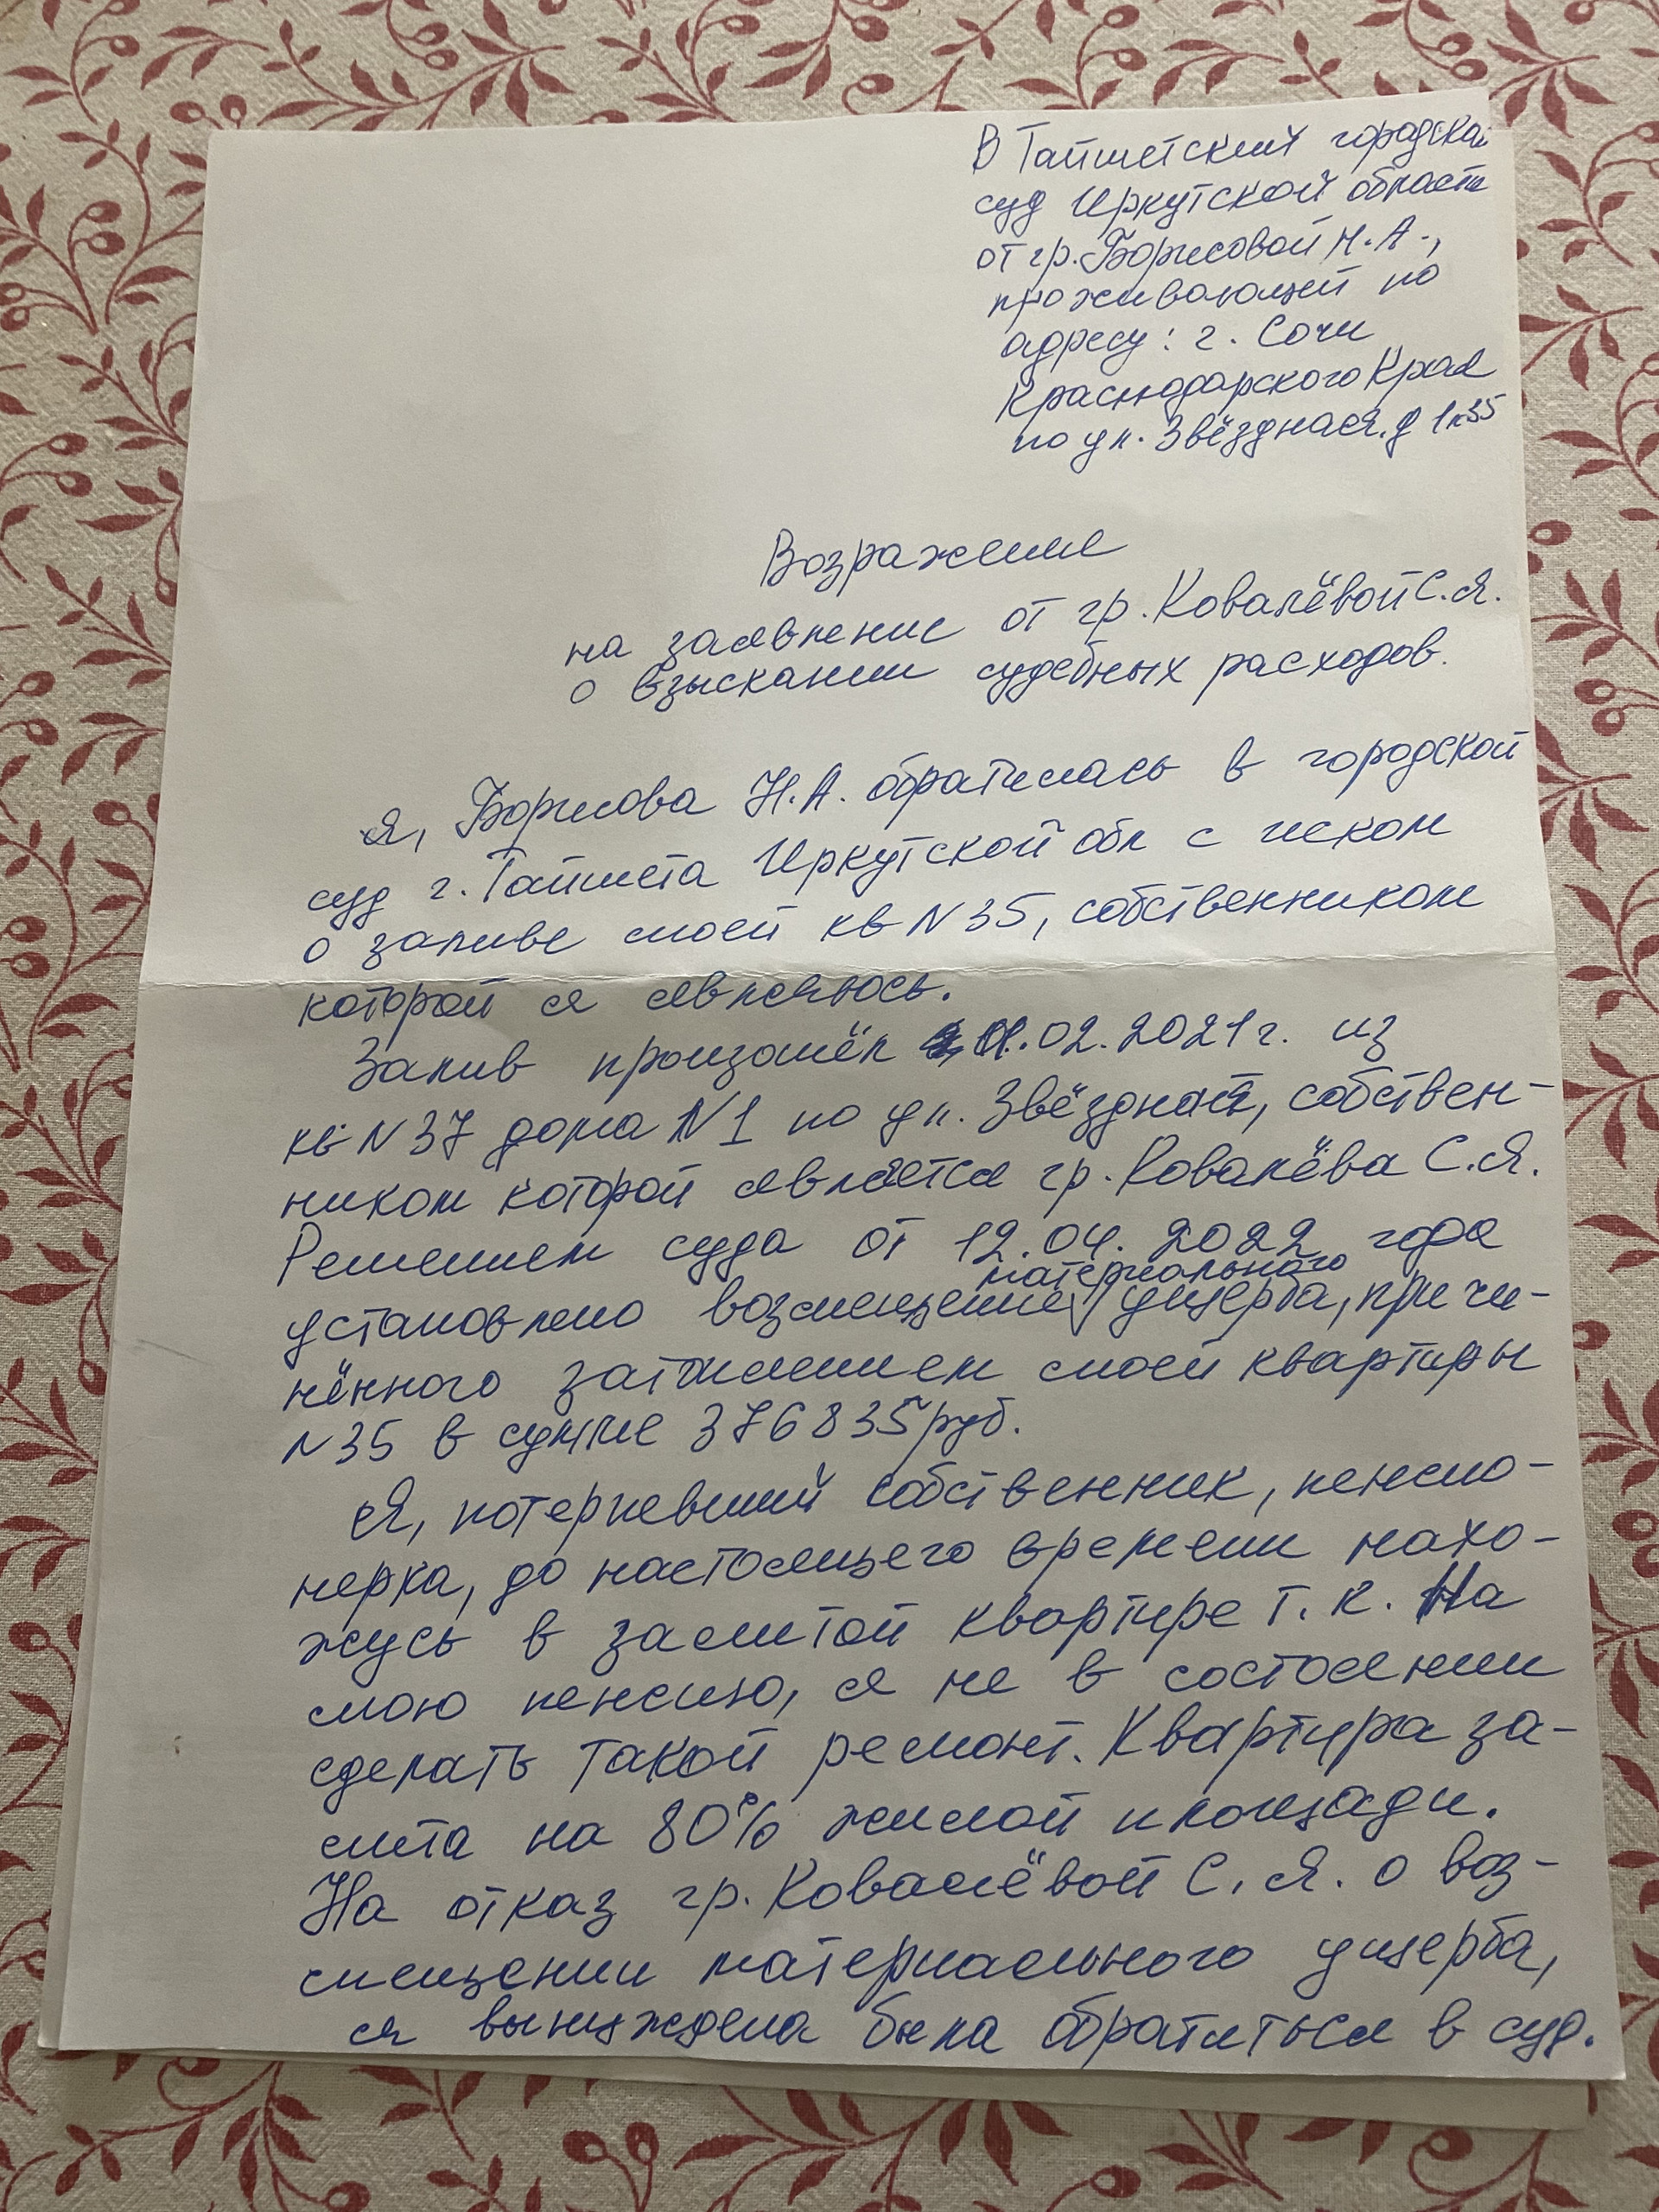 В Тайшетский городской
суд Иркутской области
от гр. Борисовой Н.А.,
проживающей по
адресу: г. Сочи
Краснодарского Края
по ул. Звёздная, д 1 к 35
Возражение
на заявление от гр. Ковалёвой С.Я.
о взыскании судебных расходов.
Я, Борисова Н.А. обратилась в городской
суд г. Тайшета Иркутской обл с иском
о заливе моей кв N 35, собственником
которой я являюсь.
Залив произошёл 01.02.2021г. из
кв N 37 дома N 1 по ул. Звёздная, собствен-
ником которой является гр. Ковалёва С.Я.
Решением суда от 12.04.2022 года
установлено возмещение материального ущерба, причи-
нённого затоплением моей квартиры
N 35 в сумме 376835 руб.
Я, потерпевший собственник, пенсио-
нерка, до настоящего времени нахо-
жусь в залитой квартире т.к. На
мою пенсию, я не в состоянии
сделать такой ремонт. Квартира за-
лита на 80% жилой площади.
На отказ гр. Ковалёвой С.Я. о воз-
мещении материального ущерба,
я вынуждена была обратиться в суд.